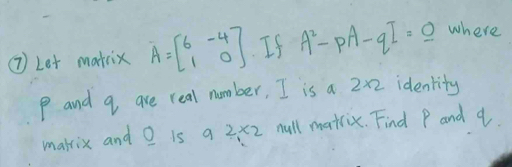 ⑦ Let matrix A = [6 -4 1 0]. If A² - pA - qI = O where
p and q are real number, I is a 2×2 identity
matrix and O is a 2×2 null matrix. Find P and q.